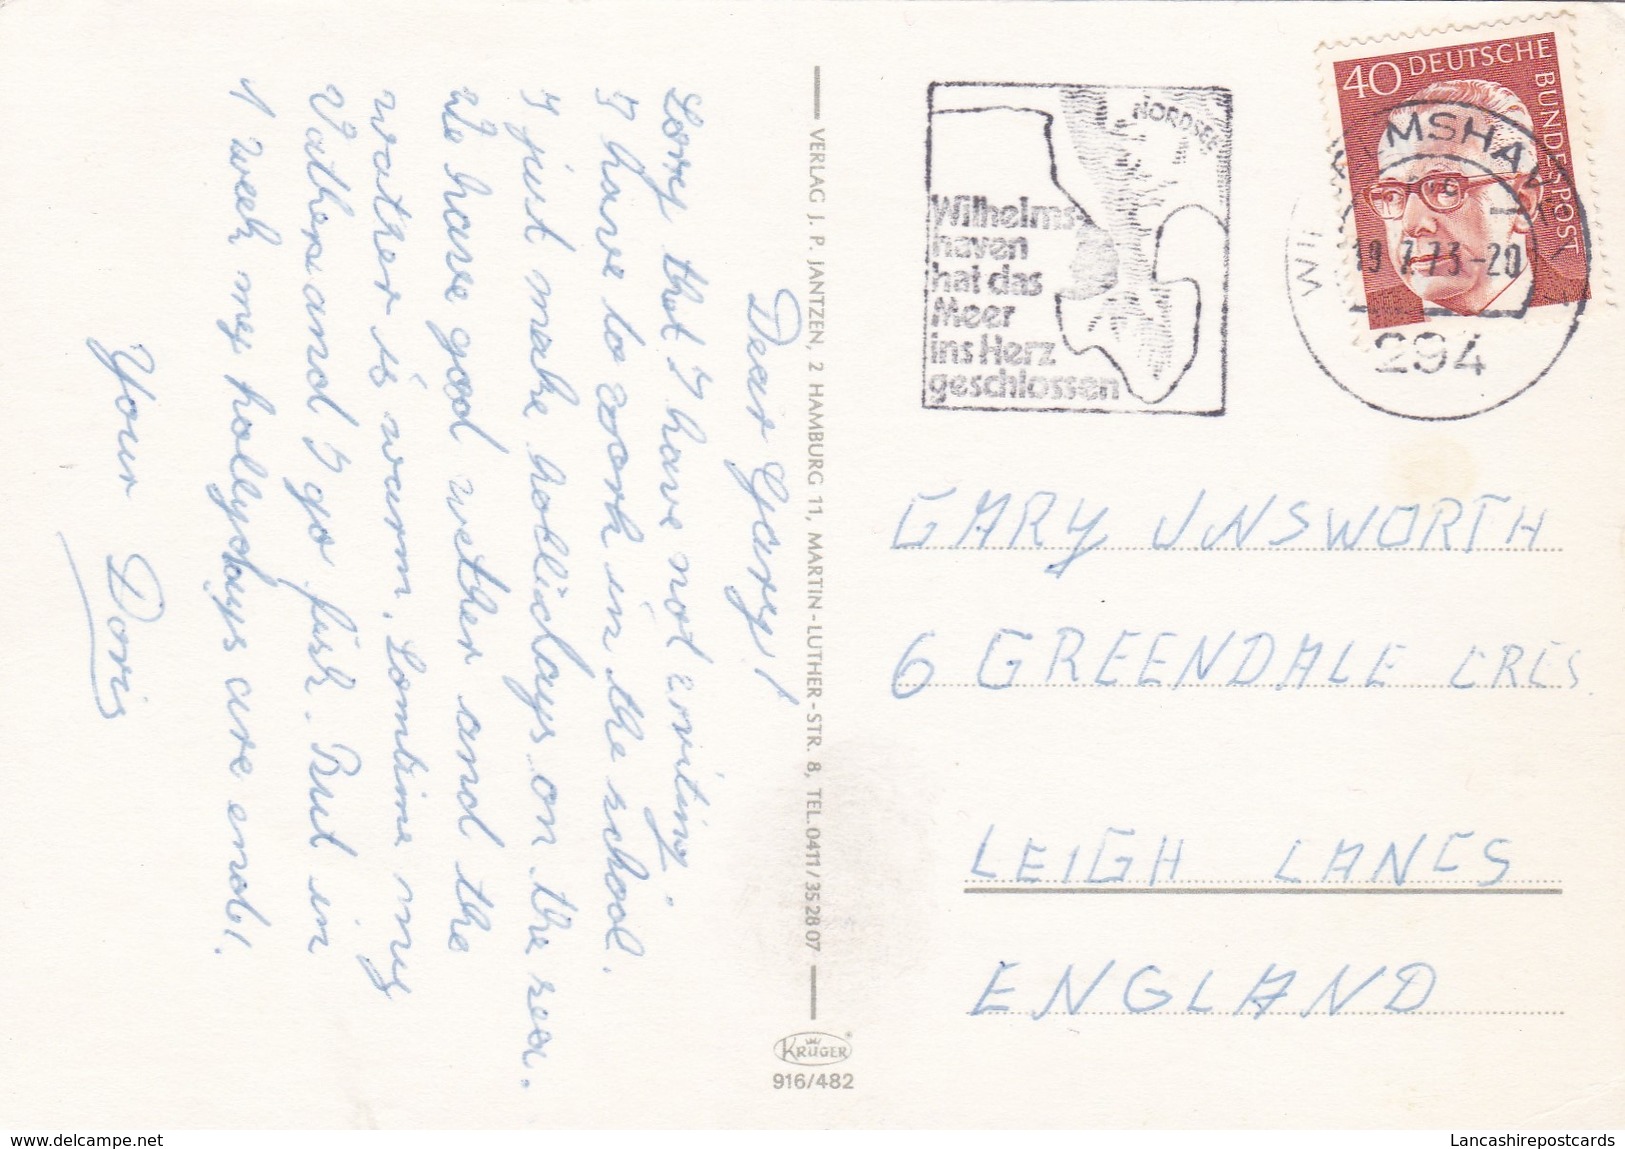 Dear Gary!
Sorry that I have not writing.
I have to work in the school.
I just make hollidays on the sea.
We have good wether and the
water is warm. Somtime my
Vather and I go fish. But in
1 week my hollydays are end!
Your Doris
VERLAG J. P. JANTZEN, 2 HAMBURG 11, MARTIN-LUTHER-STR. 8, TEL. 0411/35 28 07
KRÜGER
916/482
NORDSEE
Wilhelms-
haven
hat das
Meer
ins Herz
geschlossen
40 DEUTSCHE BUNDESPOST
19.7.73-20
294
GARY UNSWORTH
6 GREENDALE CRES
LEIGH LANCS
ENGLAND
www.delcampe.net
Lancashirepostcards